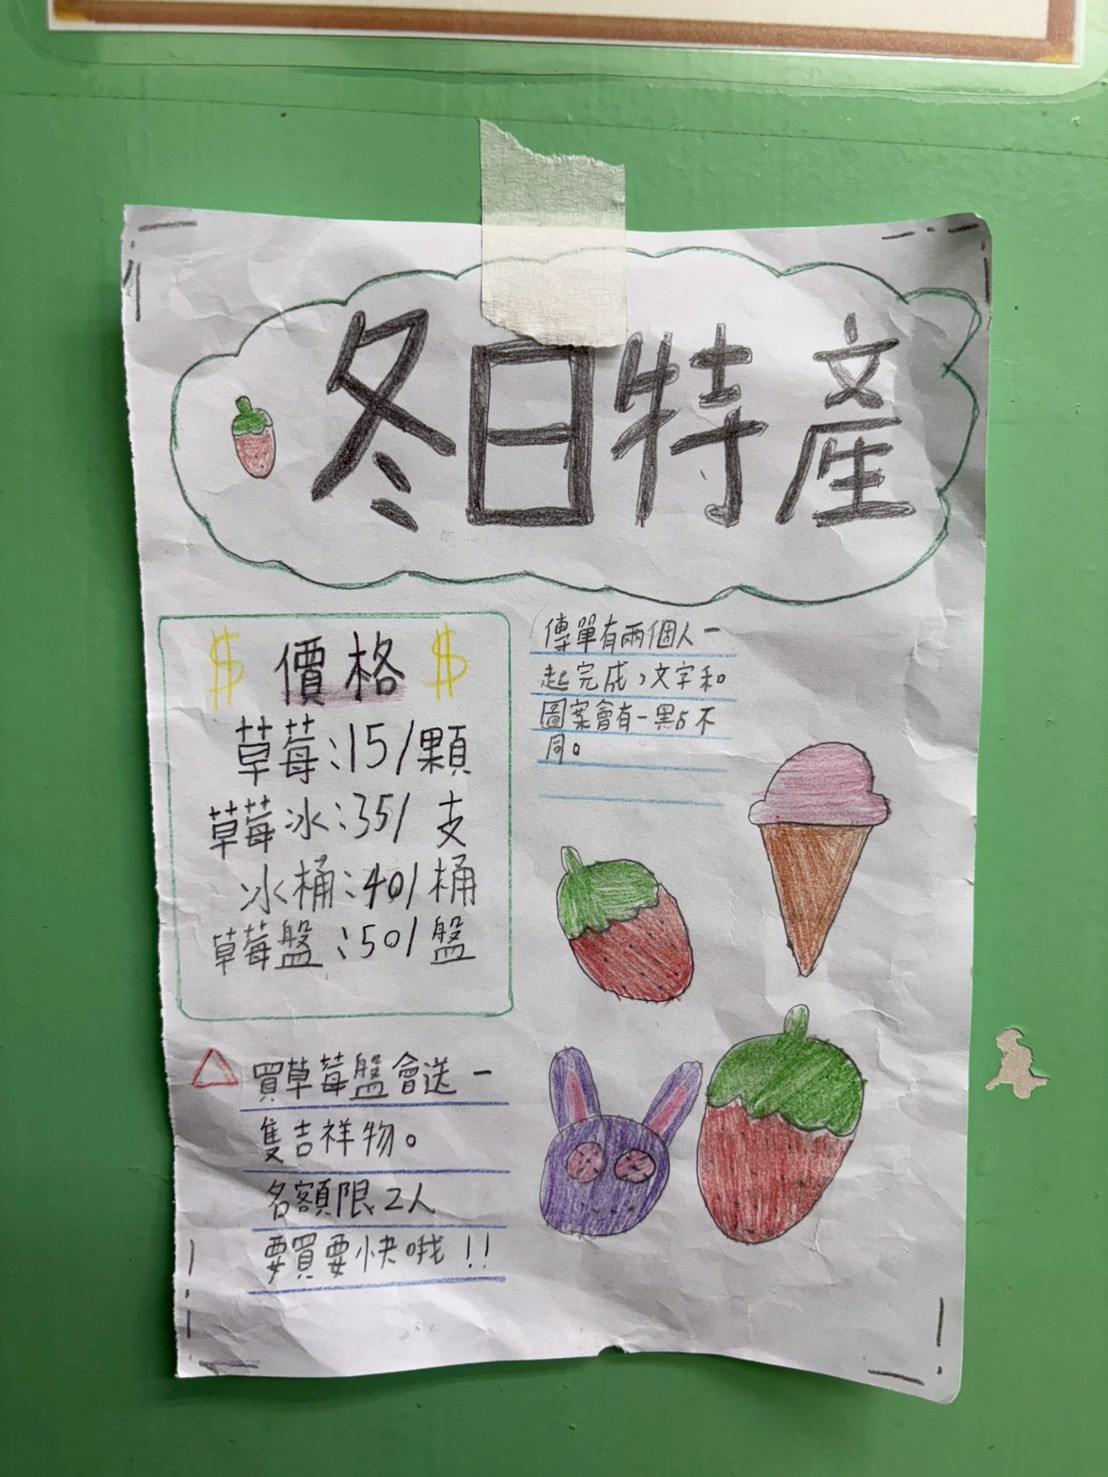 冬日特產
$ 價格 $
草莓:15/顆
草莓冰:35/支
冰桶:40/桶
草莓盤:50/盤
傳單有兩個人一
起完成,文字和
圖案會有一點不
同。
買草莓盤會送一
隻吉祥物。
名額限2人
要買要快哦!!